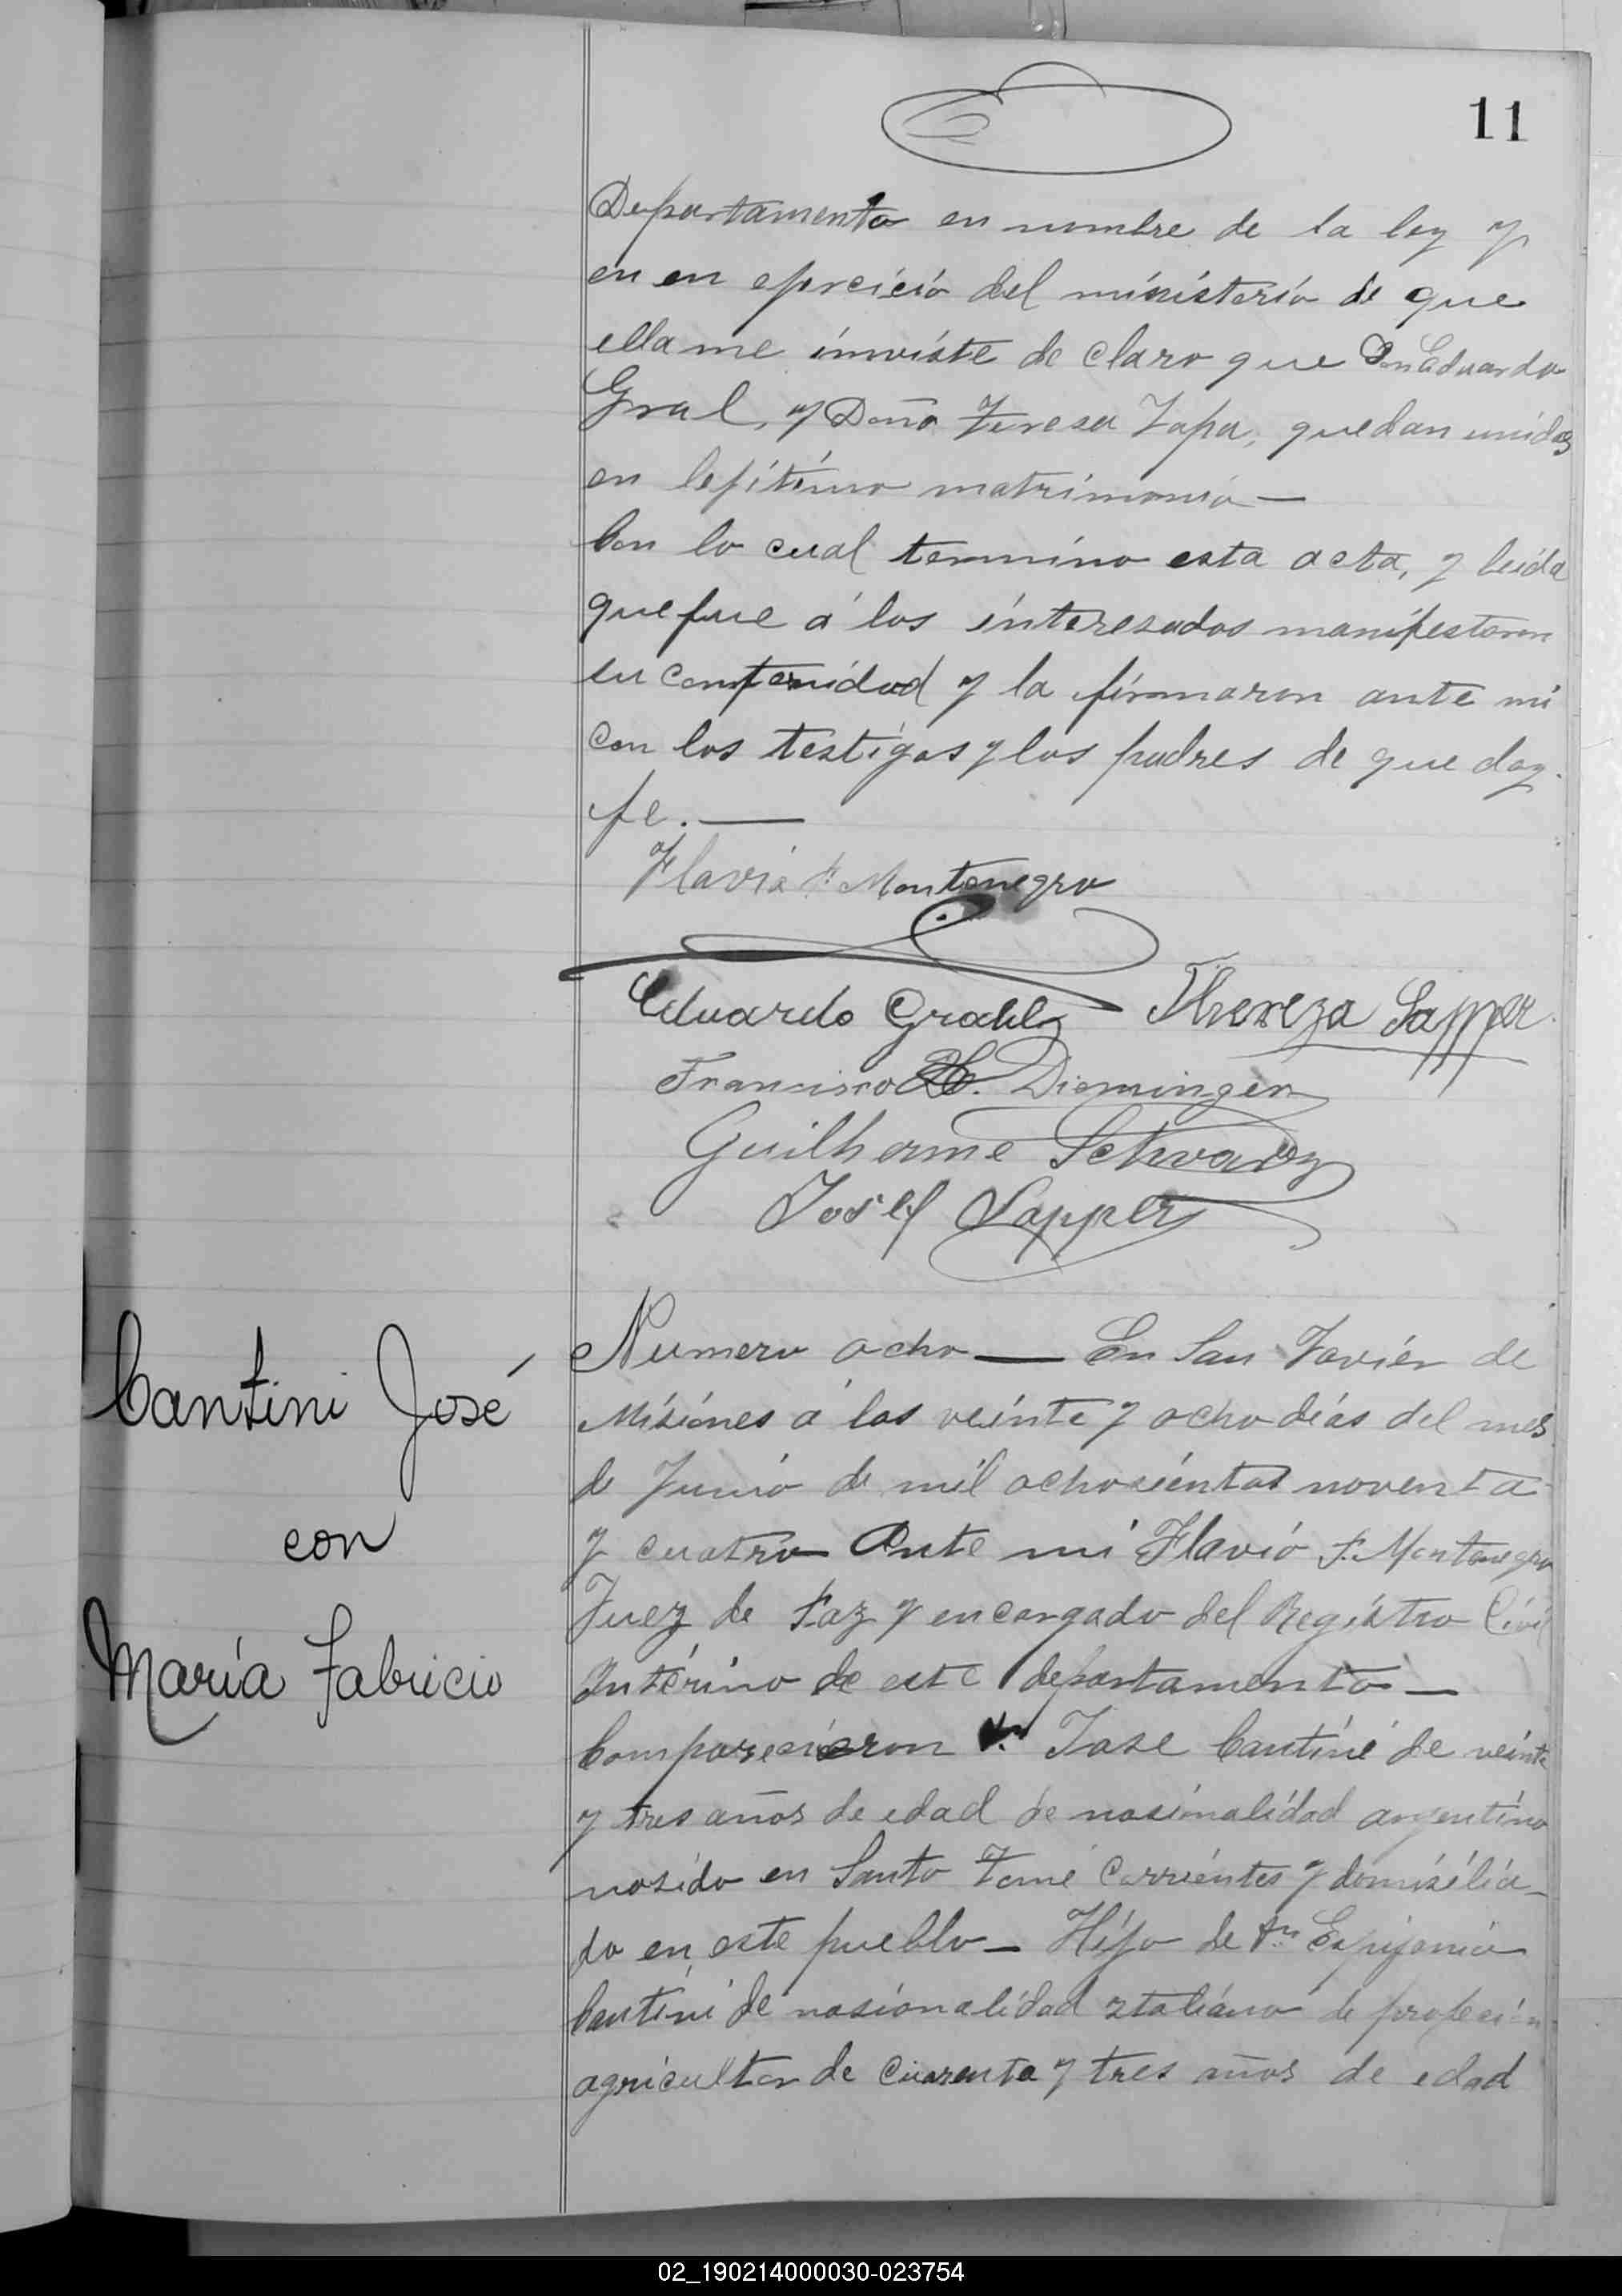 11
Departamento en nombre de la ley y
en en ejercicio del ministerio de que
ella me inviste de claro que Don Eduardo
Gral, y Doña Teresa Zapa, quedan unidos
en lejitimo matrimonio —
Con lo cual termino esta acta, y leida
que fue á los interesados manifestaron
su conformidad y la firmaron ante mi
con los testigos y los padres de que doy
fe. —
Flavio F. Montenegro
Eduardo Thereza Sapper
Francisco Dieminger
Guilherme Schwarz
Josef Sapper
Cantini José
con
María Fabricio
Numero ocho — En San Javier de
Misiones á los veinte y ocho dias del mes
de Junio de mil ochosientos noventa
y cuatro Ante mi Flavio F. Montenegro
Juez de Paz y encargado del Registro Civil
Interino de este departamento —
Comparecieron Jose Cantini de veinte
y tres años de edad de nasionalidad argentino
nasido en Santo Tomé Corrientes y domisilia-
do en este pueblo — Hijo de Dn
Cantini de nasionalidad ztaliano de profesion
agricultor de cuarenta y tres años de edad
02_190214000030-023754